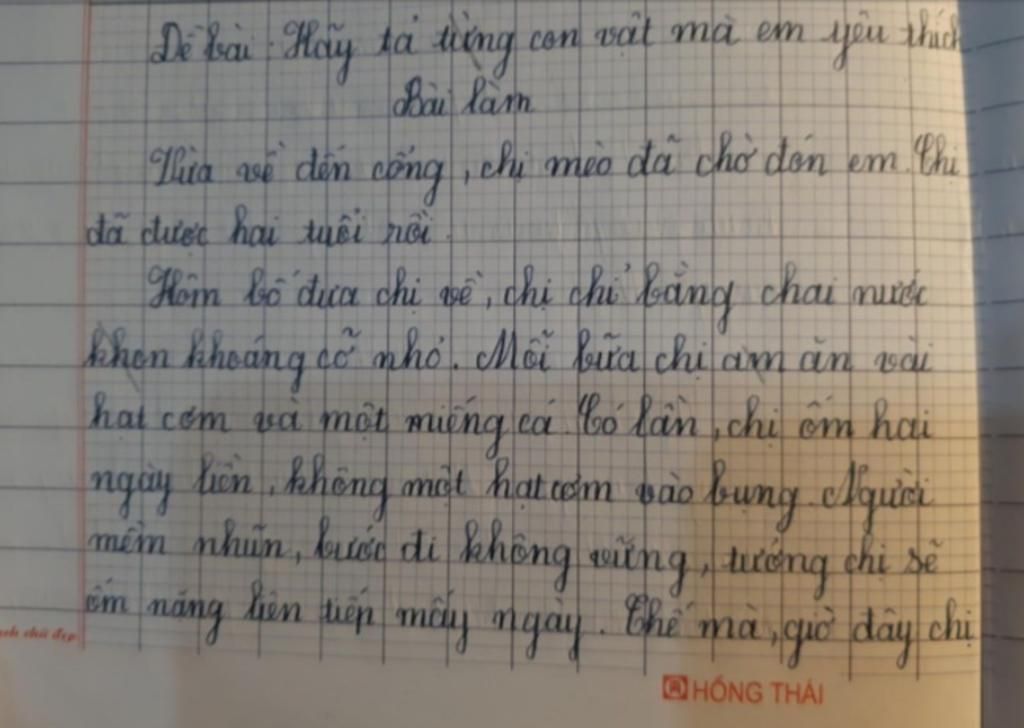 Đề bài: Hãy tả từng con vật mà em yêu thích
Bài làm
Vừa về đến cổng, chị mèo đã chờ đón em. Chị
đã được hai tuổi rồi.
Hôm bố đưa chị về, chị chỉ bằng chai nước
khon khoáng cỡ nhỏ. Mỗi bữa chị am ăn vài
hat cơm và một miếng cá. Có lần, chị ốm hai
ngày liền, không một hạt cơm vào bụng. Người
mềm nhũn, bước đi không vững, tưởng chị sẽ
ốm nặng liên tiếp mấy ngày. Thế mà, giờ đây chị
chữ đẹp
HỒNG THÁI